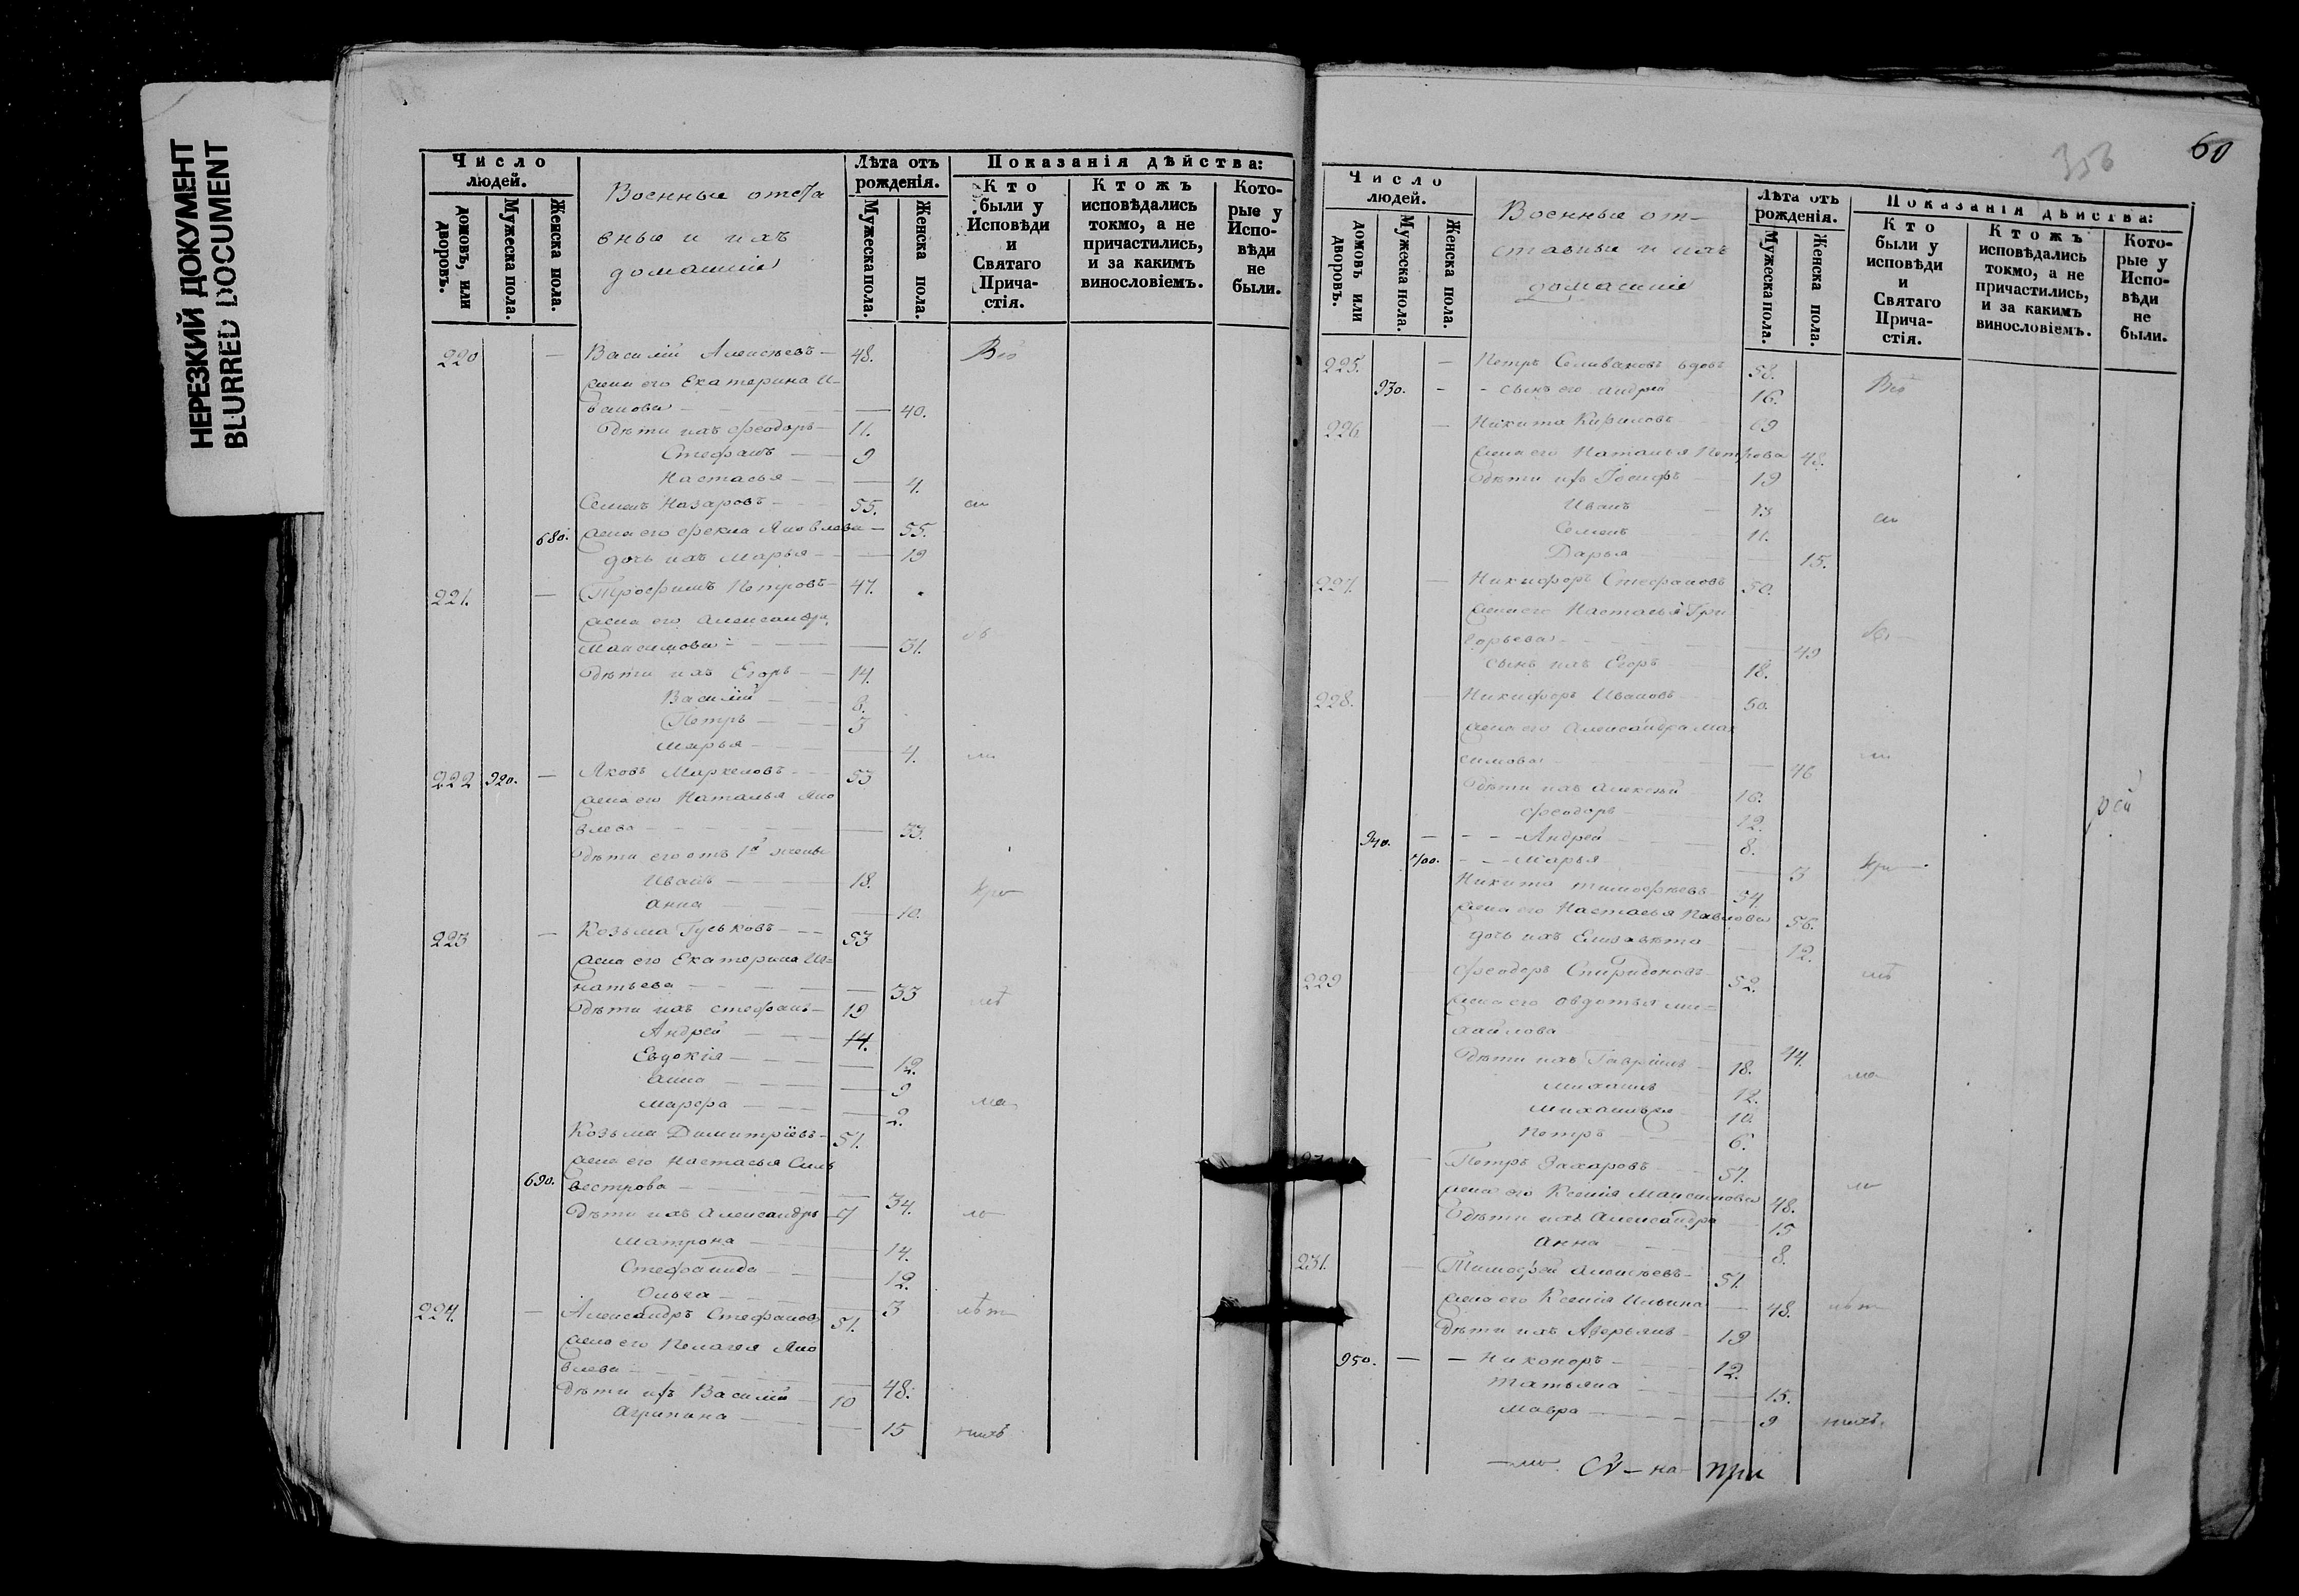 НЕРЕЗКИЙ ДОКУМЕНТ
BLURRED DOCUMENT
Число людей.
домовъ, или дворовъ.
Мужеска пола.
Женска пола.
Военные отста
вные и ихъ
домашніе
Лѣта отъ рожденія.
Мужеска пола.
Женска пола.
Показанія дѣйства:
Кто были у Исповѣди и Святаго Прича-стія.
Ктожъ исповѣдались токмо, а не причастились, и за какимъ винословіемъ.
Кото-рые у Испо-вѣди не были.
220 — Василій Алексѣевъ — 48.
жена его Екатерина И-
ванова — 40.
Дѣти ихъ Феодоръ — 11.
Стефанъ — 9
Настасья — 4.
Семенъ Назаровъ — 55.
680. жена его Фекла Яковлева — 55.
дочь ихъ Марья — 19
221. — Трофимъ Петровъ — 47.
жена его Александра
Максимова — 31.
Дѣти ихъ Егоръ — 14.
Василій 8.
Петръ — 3
Марья — 4.
222 920. — Яковъ Маркеловъ — 53
жена его Наталья Яко
влева — 33.
Дѣти его отъ 1й жены
Иванъ — 18.
Анна — 10.
223 — Козьма Гуськовъ — 53
жена его Екатерина Иг=
натьева — 33
Дѣти ихъ Стефанъ — 19
Андрей — 14.
Евдокія — 12.
Анна — 9
Марфа — 2.
Козьма Димитріевъ — 51.
жена его Настасья Силь
690. вестрова — 34.
Дѣти ихъ Александръ — 7
Матрона — 14.
Стефанида — 12.
Ольга — 3
224. — Александръ Стефановъ 51.
жена его Пелагея Яко
влева — 48.
Дѣти ихъ Василій 10
Агрипина — 15
60
353
Число людей.
домовъ или дворовъ.
Мужеска пола.
Женска пола.
Военные от-
ставные и ихъ
домашніе
Лѣта отъ рожденія.
Мужеска пола.
Женска пола.
Показанія дѣйства:
Кто были у исповѣди и Святаго Прича-стія.
Ктожъ исповѣдались токмо, а не причастились, и за какимъ винословіемъ.
Кото-рые у Испо-вѣди не были.
225. — Петръ Селивановъ вдовъ 58.
930. - - сынъ его Андрей 16.
226 — Никита Кириловъ
жена его Наталья Петрова 48.
Дѣти ихъ Іосифъ 19
Иванъ 13
Семенъ 11.
Дарья 15.
227. — Никифоръ Стефановъ 50.
жена его Настасья Гри
горьева — 49
сынъ ихъ Егоръ 18.
228. — Никифоръ Ивановъ 50.
жена его Александра Мак
симова — 46
Дѣти ихъ Алексѣй 16.
Феодоръ 12.
940. — Андрей 8.
700. — Марья 3
Никита Тимофѣевъ 54.
жена его Настасья Павлова 56.
дочь ихъ Елизавета 12.
229 Феодоръ Спиридоновъ 52.
жена его Овдотья Ми=
хайлова 44.
Дѣти ихъ Гаврiилъ 18.
Михаилъ 12.
10.
Петръ 6.
— Петръ Захаровъ 57.
жена его Ксенія Максимова 48.
Дѣти ихъ Александра 15
Анна 8.
231. — Тимофей Алексѣевъ 51.
жена его Ксенія Ильина — 48.
Дѣти ихъ Аверьянъ 19
950. — Никоноръ 12.
Татьяна 15.
Мавра — 9